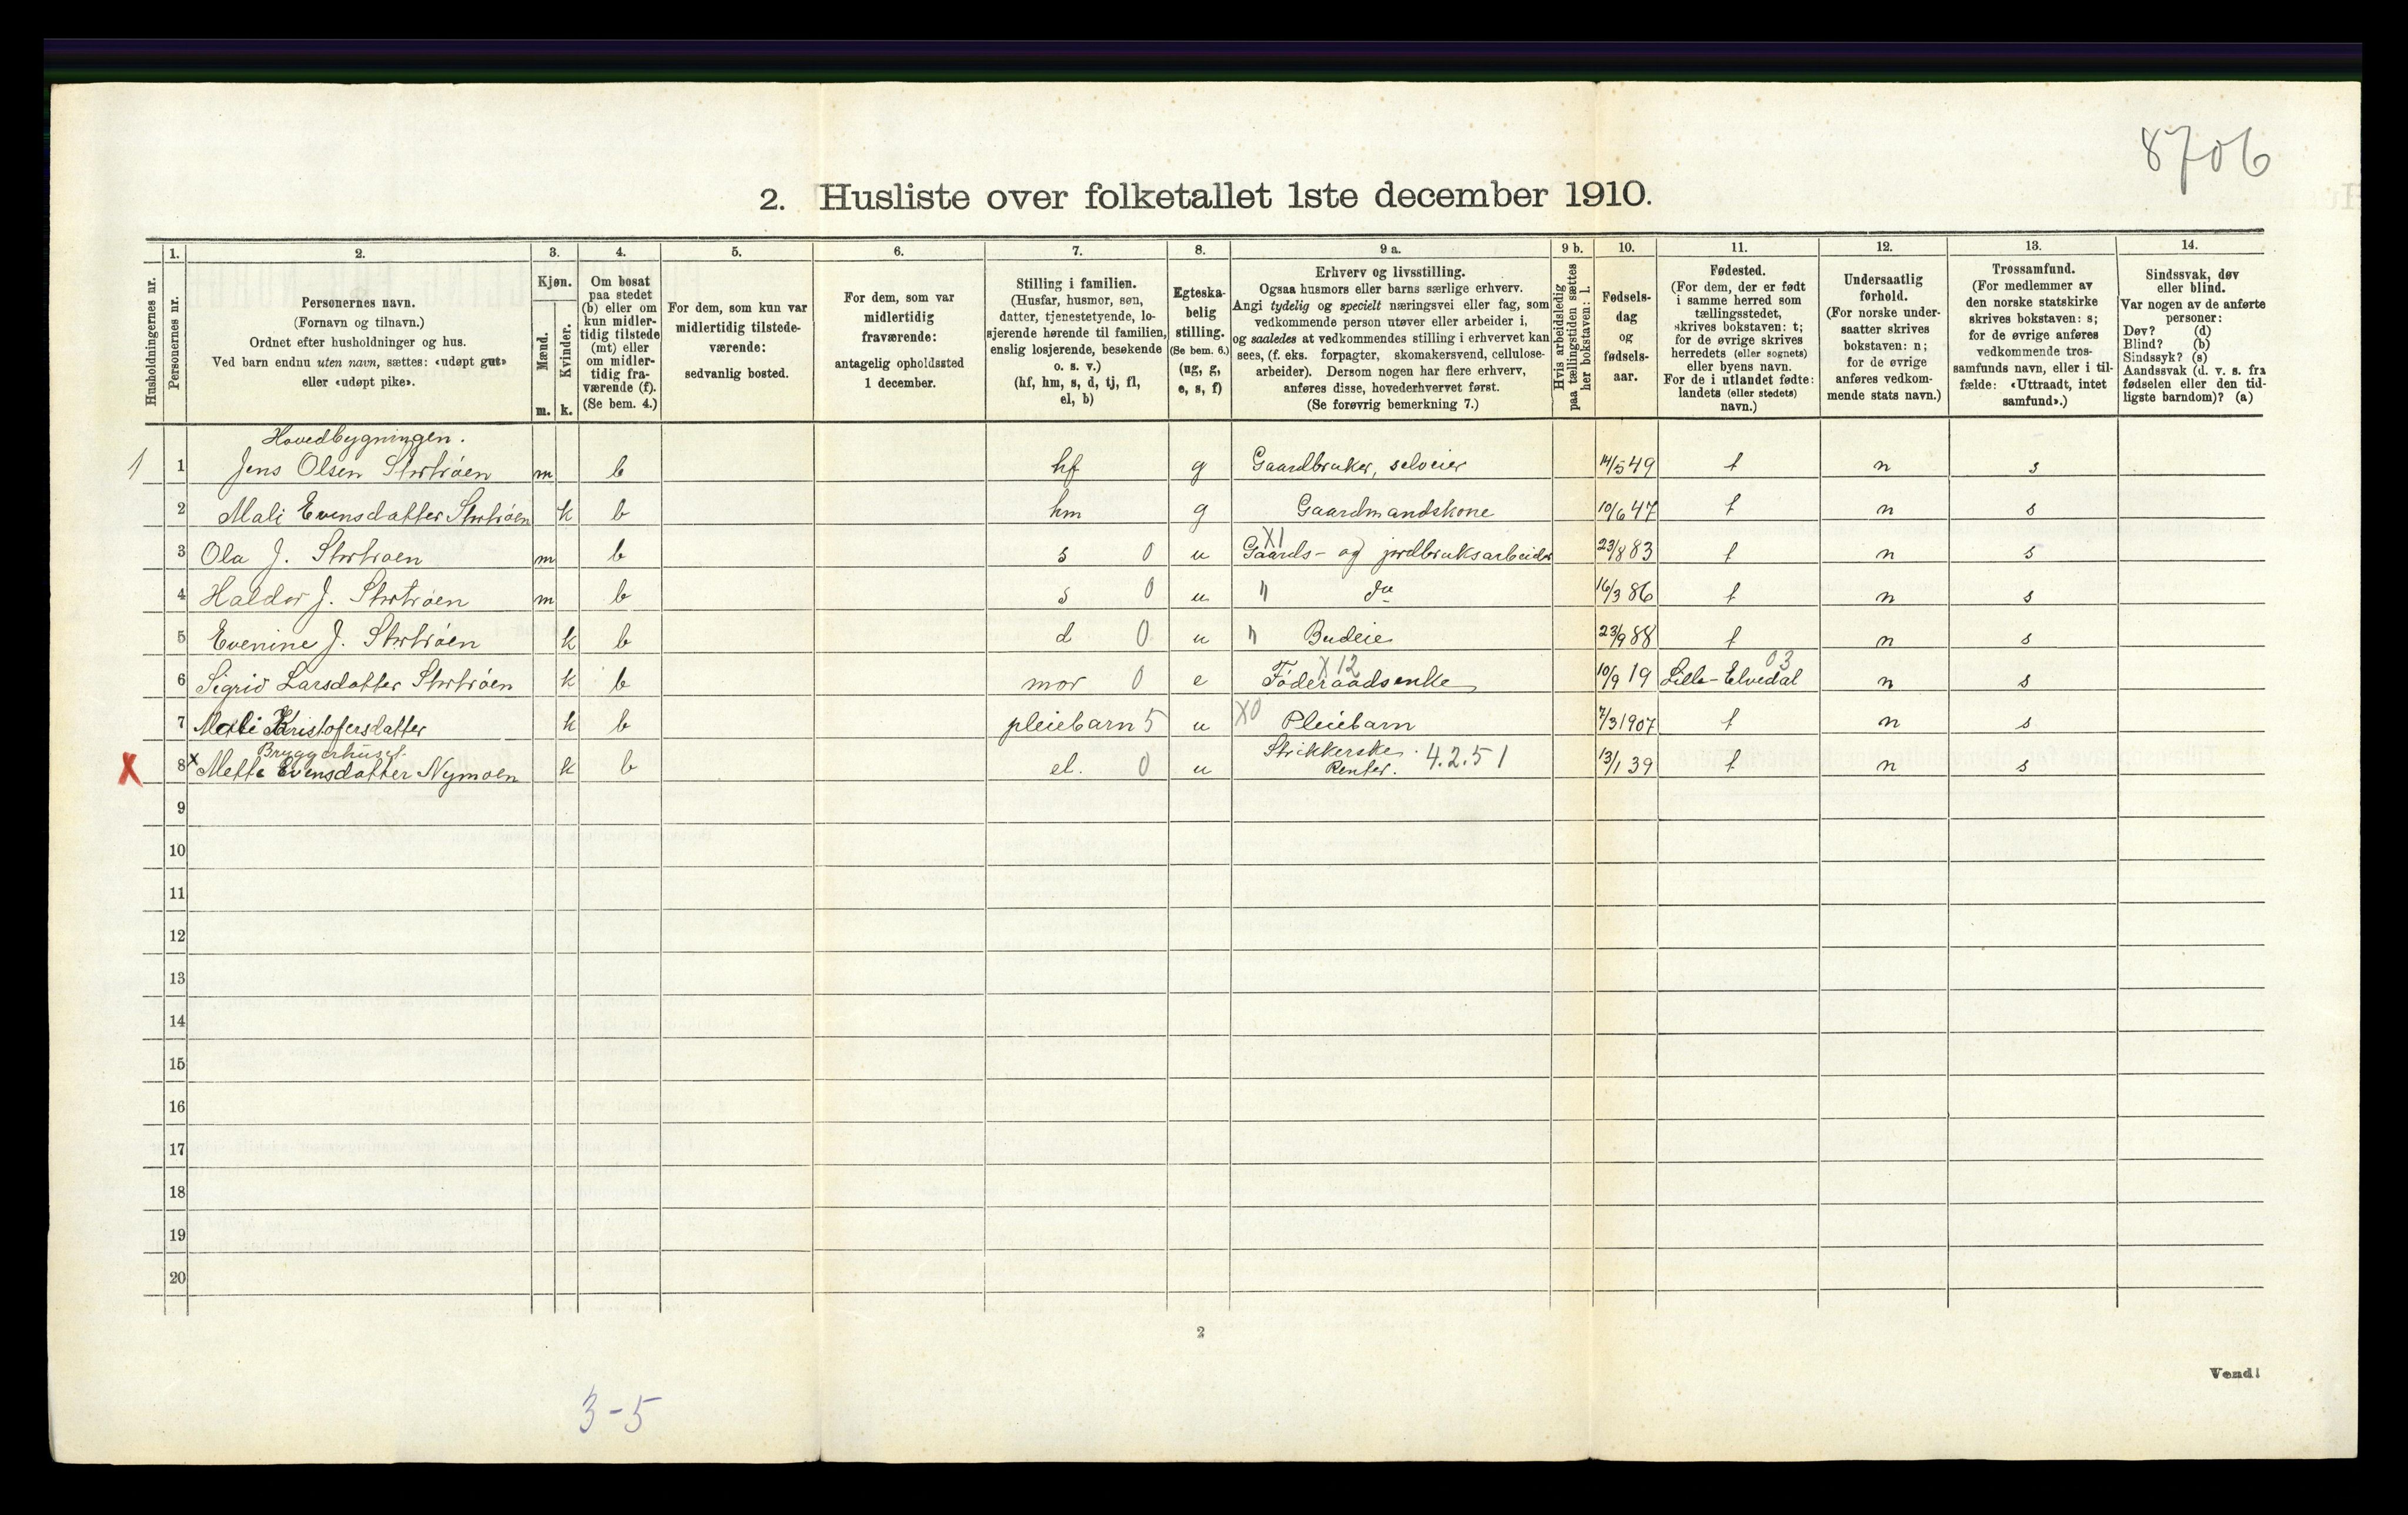 8706
2. Husliste over folketallet 1ste december 1910.
Husholdningernes nr.
1.
Personernes nr.
2.
Personernes navn.
(Fornavn og tilnavn.)
Ordnet efter husholdninger og hus.
Ved barn endnu uten navn, sættes: «udøpt gut»
eller «udøpt pike».
3.
Kjøn.
Mænd.
m.
Kvinder.
k.
4.
Om bosat
paa stedet
(b) eller om
kun midler-
tidig tilstede
(mt) eller
om midler-
tidig fra-
værende (f).
(Se bem. 4.)
5.
For dem, som kun var
midlertidig tilstede-
værende:
sedvanlig bosted.
6.
For dem, som var
midlertidig
fraværende:
antagelig opholdssted
1 december.
7.
Stilling i familien.
(Husfar, husmor, søn,
datter, tjenestetyende, lo-
sjerende hørende til familien,
enslig losjerende, besøkende
o. s. v.)
(hf, hm, s, d, tj, fl,
el, b)
8.
Egteska-
belig
stilling.
(Se bem. 6.)
(ug, g,
e, s, f)
9 a.
Erhverv og livsstilling.
Ogsaa husmors eller barns særlige erhverv.
Angi tydelig og specielt næringsvei eller fag, som
vedkommende person utøver eller arbeider i,
og saaledes at vedkommendes stilling i erhvervet kan
sees, (f. eks. forpagter, skomakersvend, cellulose-
arbeider). Dersom nogen har flere erhverv,
anføres disse, hovederhvervet først.
(Se forøvrig bemerkning 7.)
9 b.
Hvis arbeidsledig
paa tællingstiden sættes
her bokstaven: l.
10.
Fødsels-
dag
og
fødsels-
aar.
11.
Fødested.
(For dem, der er født
i samme herred som
tællingsstedet,
skrives bokstaven: t;
for de øvrige skrives
herredets (eller sognets)
eller byens navn.
For de i utlandet fødte:
landets (eller stedets)
navn.)
12.
Undersaatlig
forhold.
(For norske under-
saatter skrives
bokstaven: n;
for de øvrige
anføres vedkom-
mende stats navn.)
13.
Trossamfund.
(For medlemmer av
den norske statskirke
skrives bokstaven: s;
for de øvrige anføres
vedkommende tros-
samfunds navn, eller i til-
fælde: «Uttraadt, intet
samfund».)
14.
Sindssvak, døv
eller blind.
Var nogen av de anførte
personer:
Døv? (d)
Blind? (b)
Sindssyk? (s)
Aandssvak (d. v. s. fra
fødselen eller den tid-
ligste barndom)? (a)
Hovedbygningen.
1 1 Jens Olsen Strtrøen m b hf g Gaardbruker, selveier 14/5 49 t n s
2 Mali Evensdatter Strtrøen k b hm g Gaardmandskone 10/6 47 t n s
X1
3 Ola J. Strtrøen m b s 0 u Gaards- og jordbruksarbeider 23/8 83 t n s
4 Haldor J. Strtrøen m b s 0 u " do 16/3 86 t n s
5 Evenine J. Strtrøen k b d 0 u " Budeie 23/9 88 t n s
X12 03
6 Sigrid Larsdatter Strtrøen k b mor 0 e Føderaadsenke 10/9 19 Lille-Elvedal n s
7 Mali Kristofersdatter k b pleiebarn 5 u X0 Pleiebarn 7/3 1907 t n s
Bryggerhuset. Strikkerske. 4.2.51
X 8 x Mette Evensdatter Nymoen k b el. 0 u Renter. 13/1 39 t n s
9
10
11
12
13
14
15
16
17
18
19
20
2
Vend!
3-5